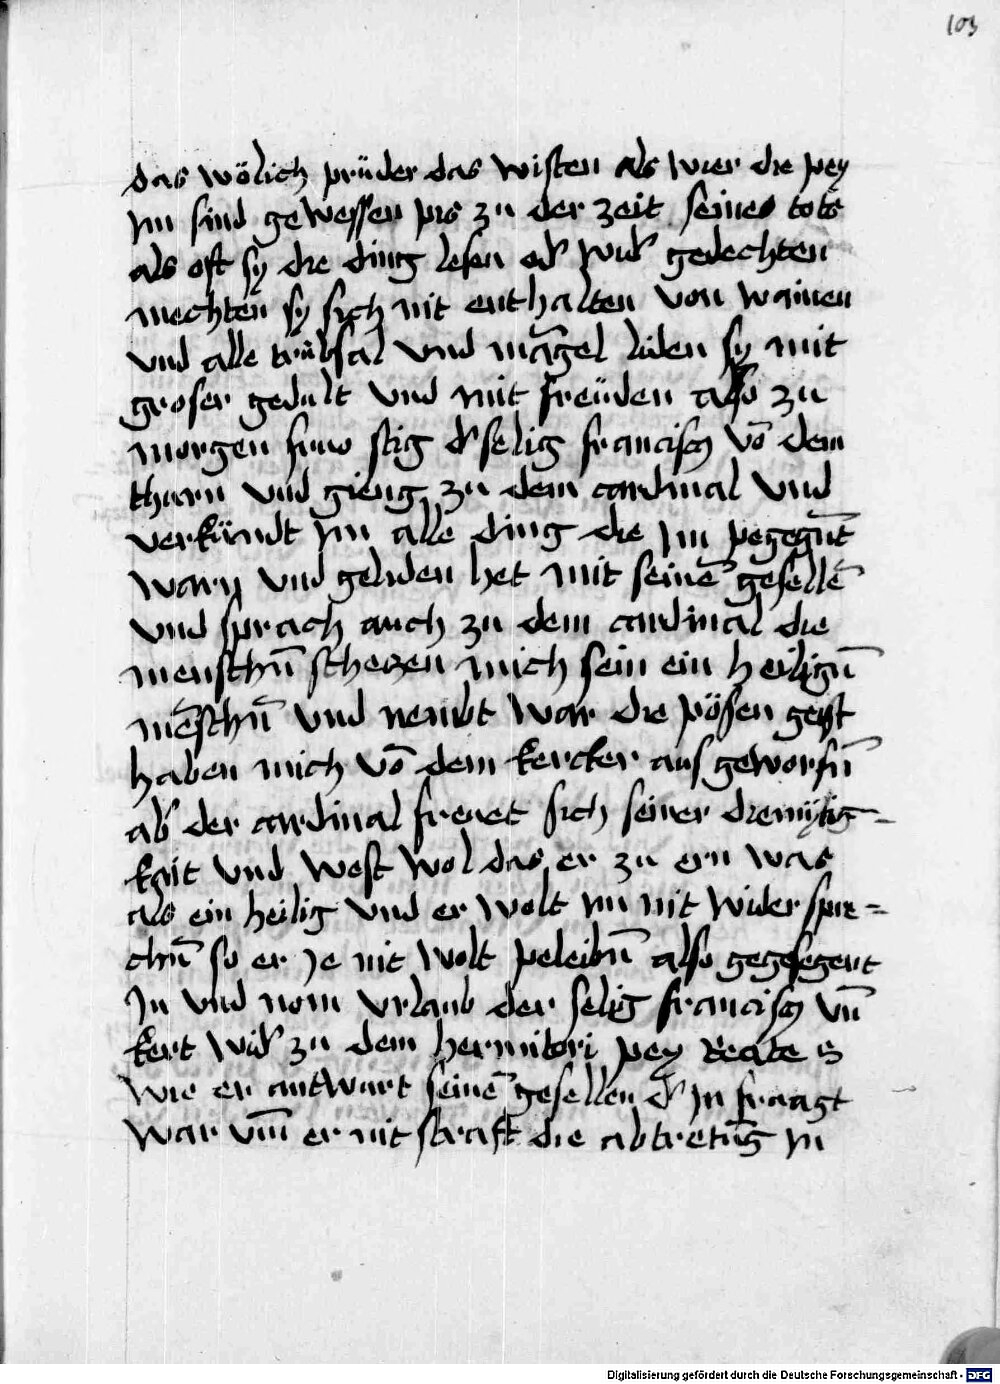 103
das wölich prüder das wisten als wier die pey
jm sind gewessen pis zu der zeit seines tots
als oft sy die ding lesen od' wid' gedechten
mechten sy sich nit enthalten von wainen
und alle trübsal und mãgel liden sy mit
groser gedult und mit freüden also zu
morgen fruo stig d' selig francisch võ dem
thurn und gieng zu dem cardinal und
verkündt jm alle ding die jm pegegn̄t
warn und geliden het mit seinẽ gesellẽ
und sprach auch zu dem cardinal die
menschn̄ scheczen mich sein ein heilign̄
mẽschn̄ und nembt war die pösen geist
haben mich võ dem kercker aus geworfn̄
ab' der cardinal freuet sich seiner diemütig-
kait und west wol das er zu ern was
als ein heilig und er wolt jm nit wider spre=
chn̄ so er je nit wolt peleibn̄ also gegesegent
jn und nom urlaub der selig francisch un̄
kert wid' zu dem hermitori pey Reate
wie er antwurt seinẽ gesellen d' jn fraagt
war um̄ er nit straft die abtretũg jn
Digitalisierung gefördert durch die Deutsche Forschungsgemeinschaft - DFG